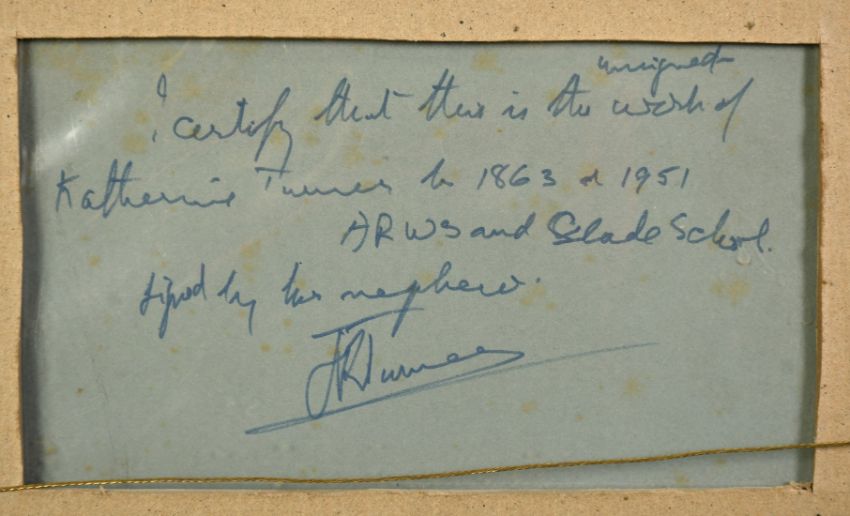 unsigned
I certify that this is the work of
Katherine Turner b 1863 d 1951
ARWS and Slade School.
signed by her nephew.
JRTurner